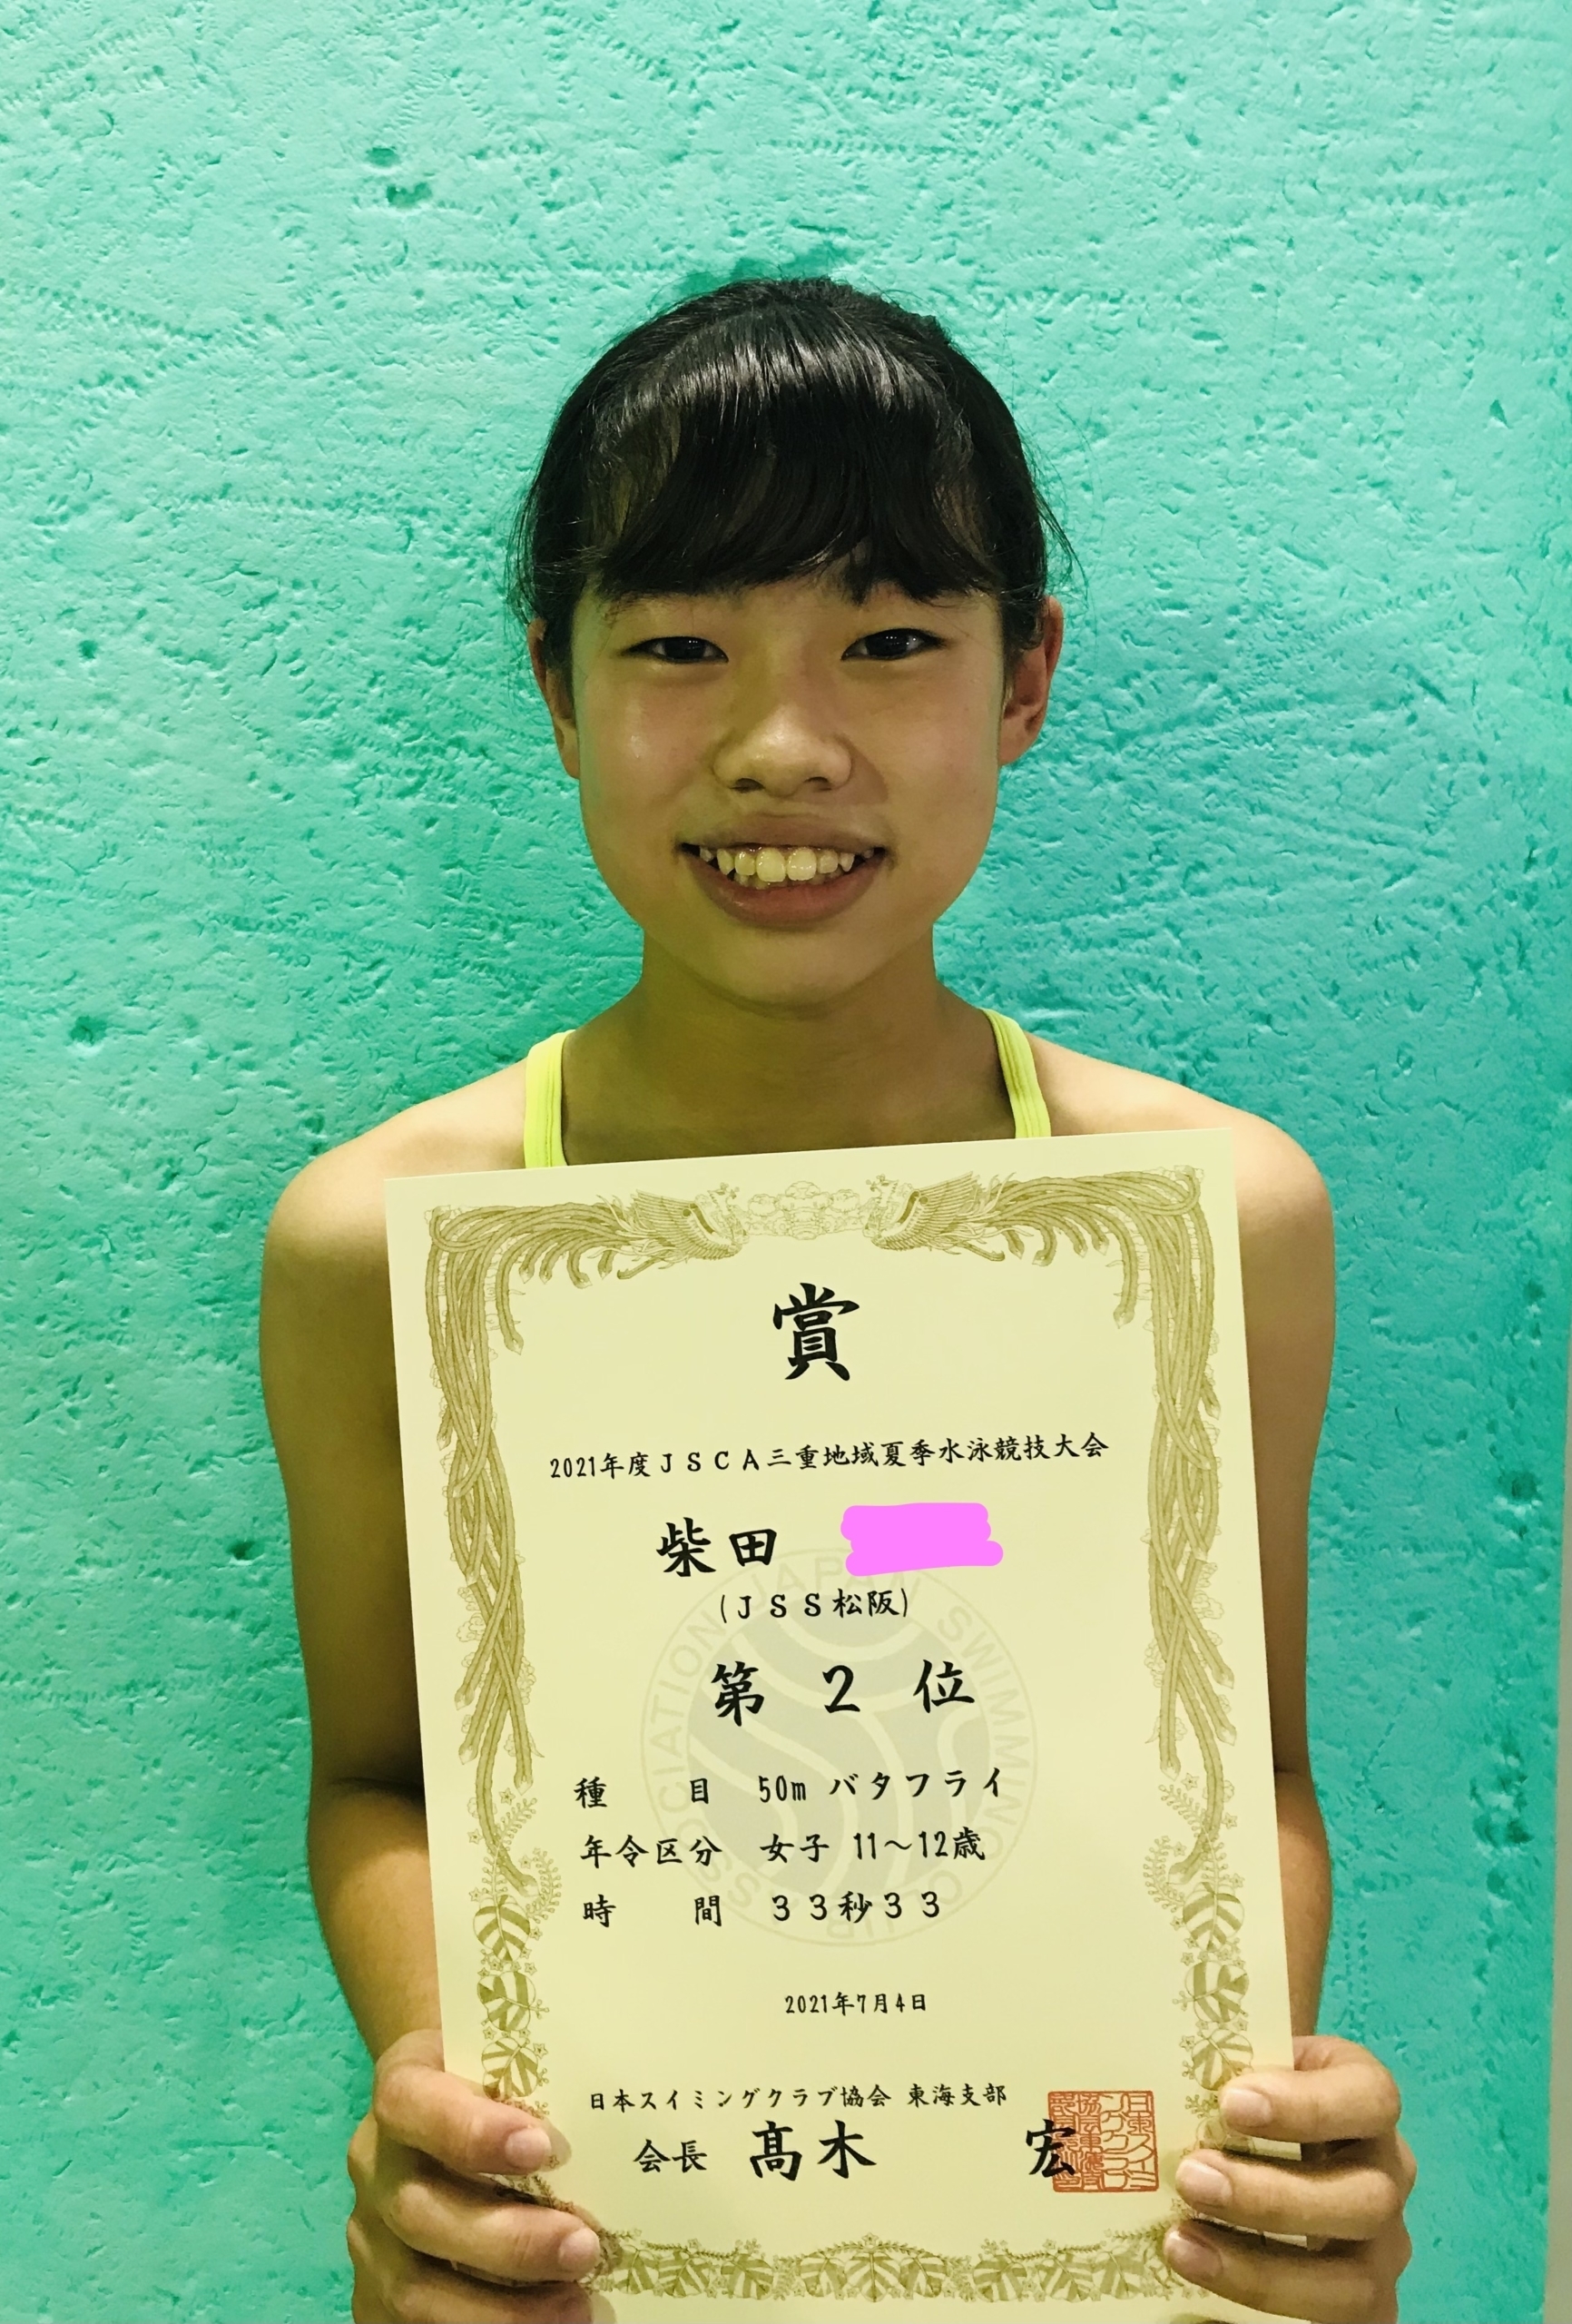 賞
2021年度JSCA三重地域夏季水泳競技大会
柴田
(JSS松阪)
第 2 位
種 目 50m バタフライ
年令区分 女子 11～12歳
時 間 33秒33
2021年7月4日
日本スイミングクラブ協会 東海支部
会長 髙木 宏
JAPAN SWIMMING